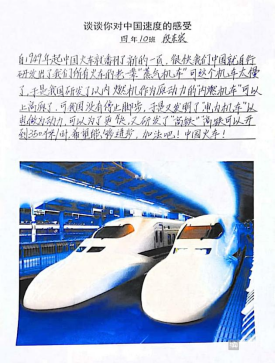 谈谈你对中国速度的感受
四年10班
自1949年起中国火车就翻开了新的一页,很快我们中国就自行
研发出了我们所有火车的老一辈"蒸气机车"可这个机车太慢
了,于是我国研发了以内燃机作为原动力的"内燃机车"可以
上高麻了,可我国没有停止脚步,于是又发明了"电力机车"以
电做为动力,可以为了更快,又研发了"高铁"高铁可以开
到350千米/时,希望能够进步,加油吧!中国火车!